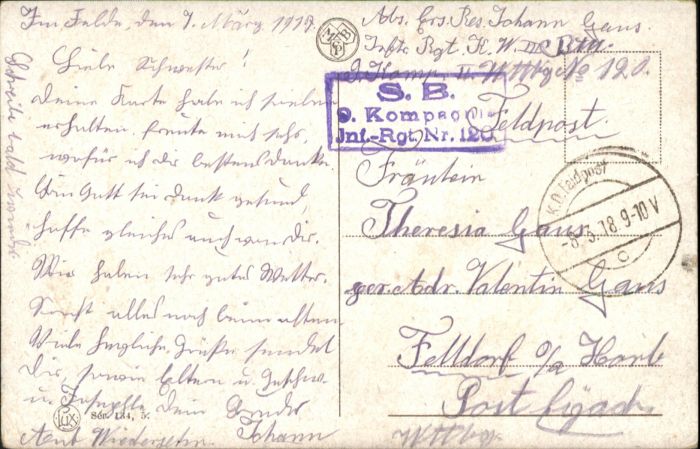 Im Felde, den 7. März 1918.
Liebe Schwester!
Deine Karte habe ich
erhalten, freute mich sehr,
wofür ich dir bestens danke.
Bin Gott sei Dank gesund,
hoffe gleiches auch von Dir.
Wir haben sehr gutes Wetter.
Sonst alles noch beim alten.
Viele herzliche Grüße sendet
Dir, sowie Eltern u. Geschw-
u. Dein Bruder
Auf Wiedersehn. Johann
Schreibe bald
Abs. Ers. Res. Johann Gaus
Inftr. Rgt. K. W. III
9. Komp. II. Wttbg No 120.
Feldpost.
S. B.
9. Kompagnie
Inf.-Rgt. Nr. 120
K.D. Feldpost
-8.3.18 9-10 V
c
Fräulein
Theresia Gaus
per. Adr. Valentin Gaus
Felldorf o/a Horb
Post Eyach
Wttbg.
MBP
Lux
Ser. 134, 5.